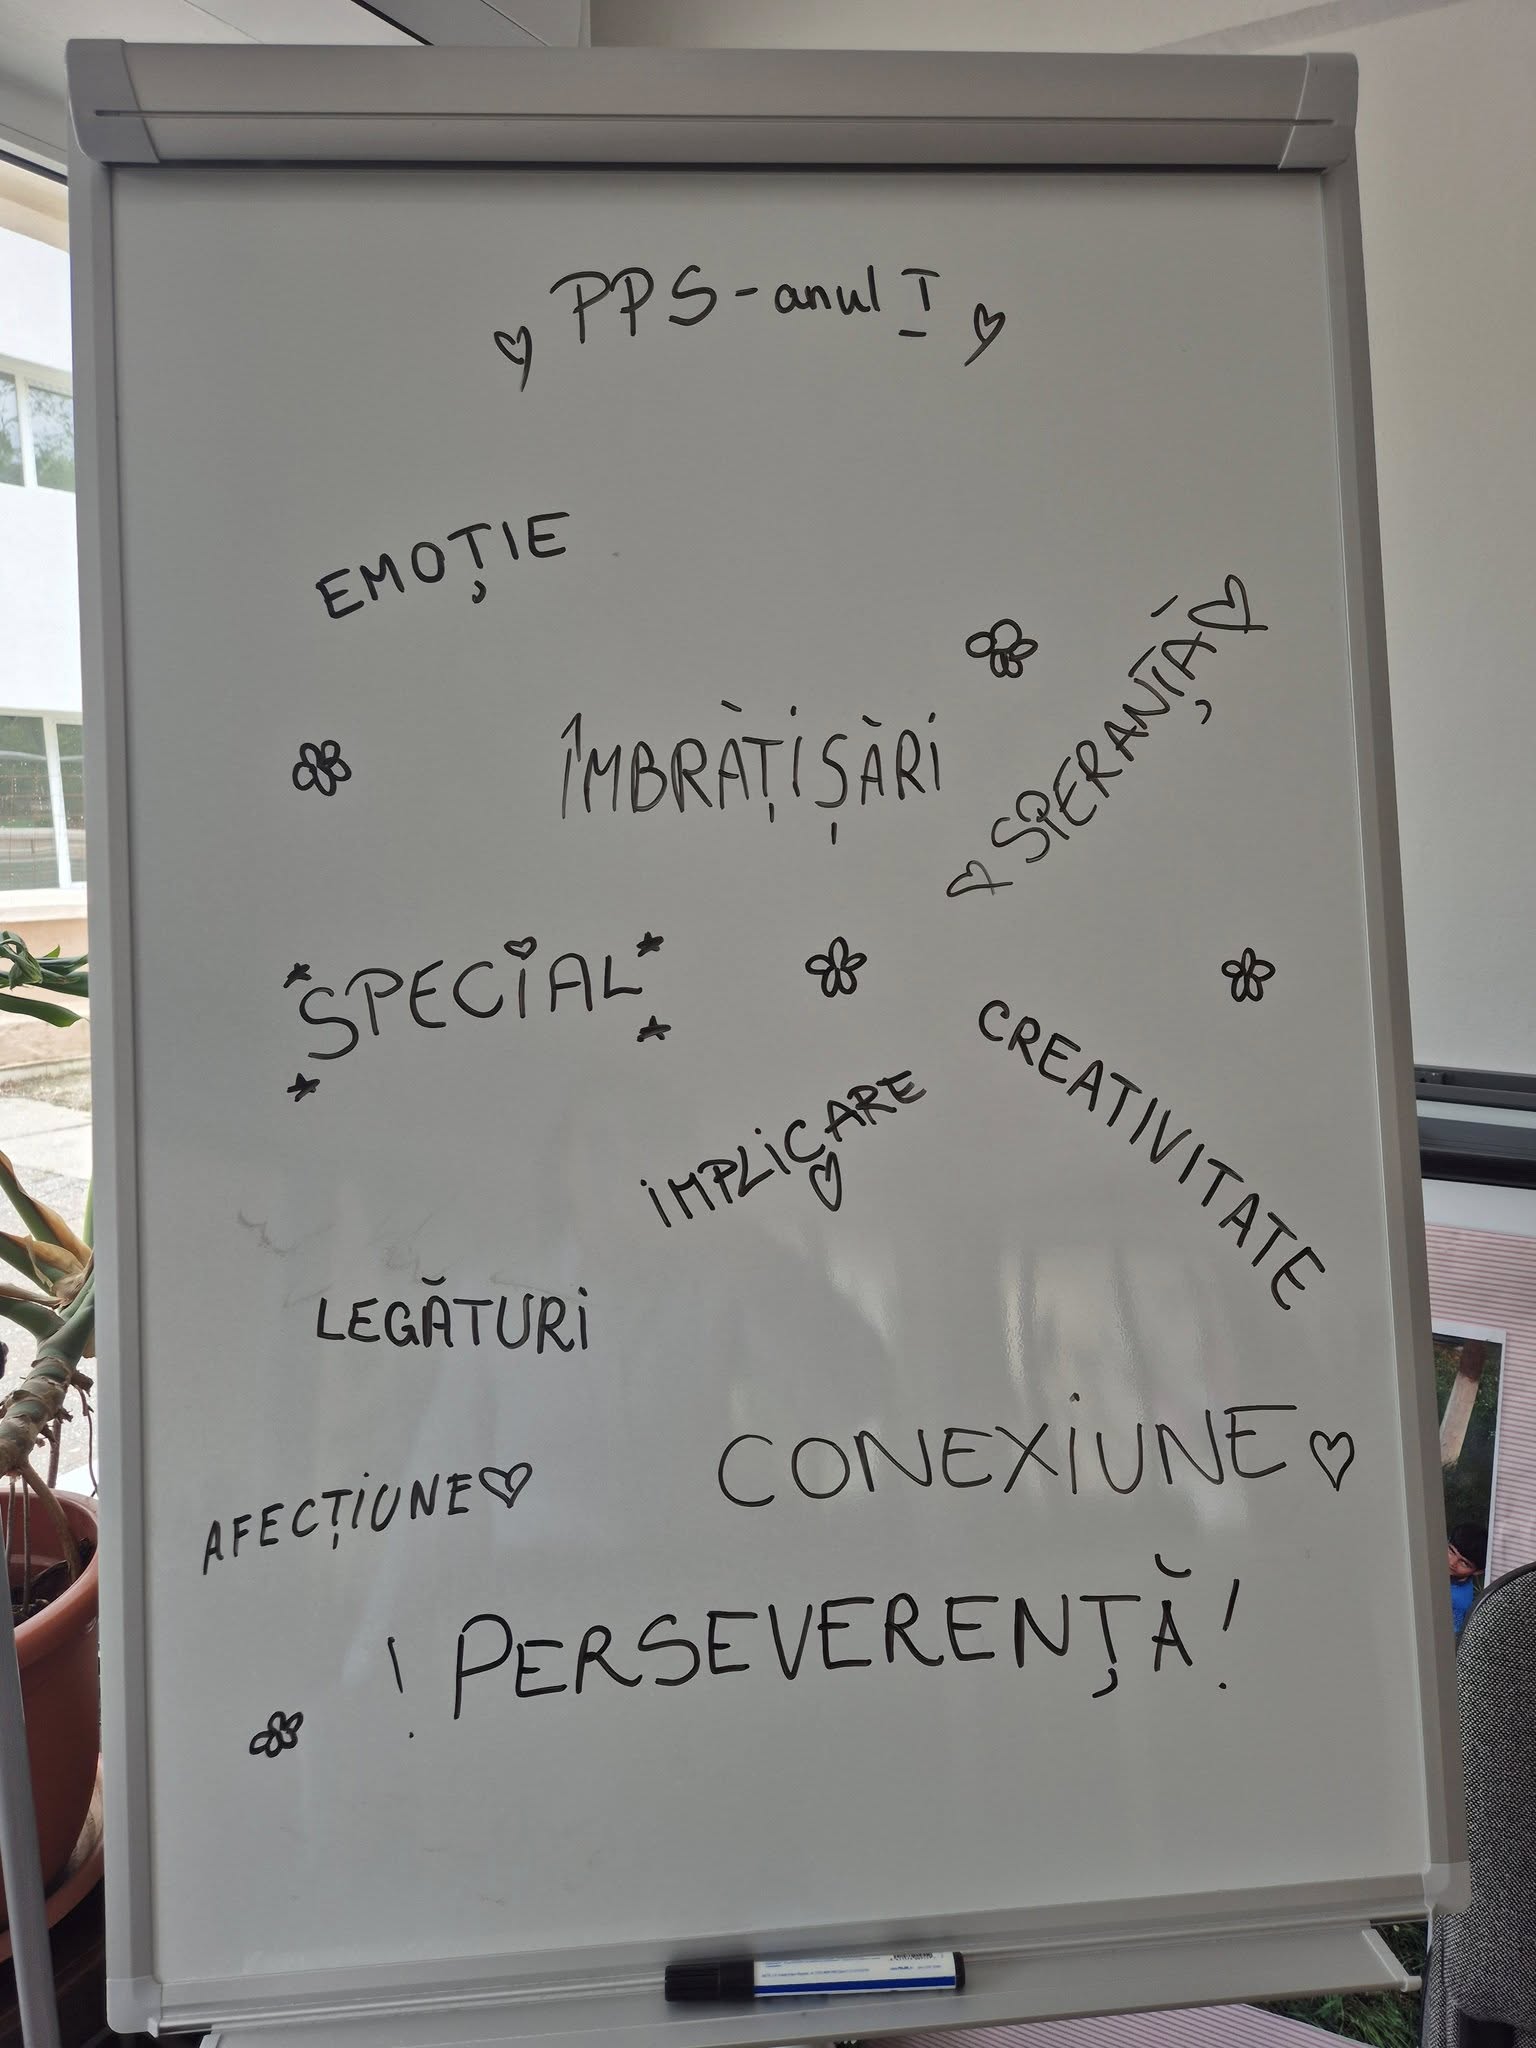 PPS - anul I
EMOȚIE
ÎMBRĂȚIȘĂRI
SPERANȚĂ
SPECIAL
CREATIVITATE
IMPLICARE
LEGĂTURI
CONEXIUNE
AFECȚIUNE
! PERSEVERENȚĂ !